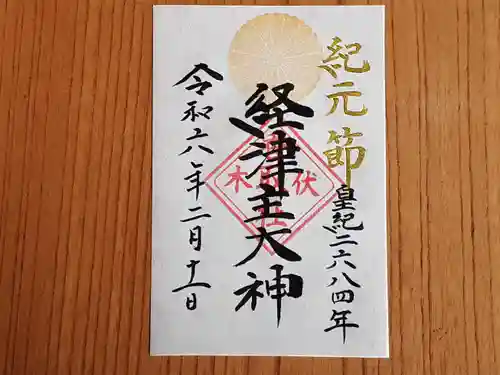 紀元節
皇紀二六八四年
経津主大神
令和六年二月十一日
伏
木
社